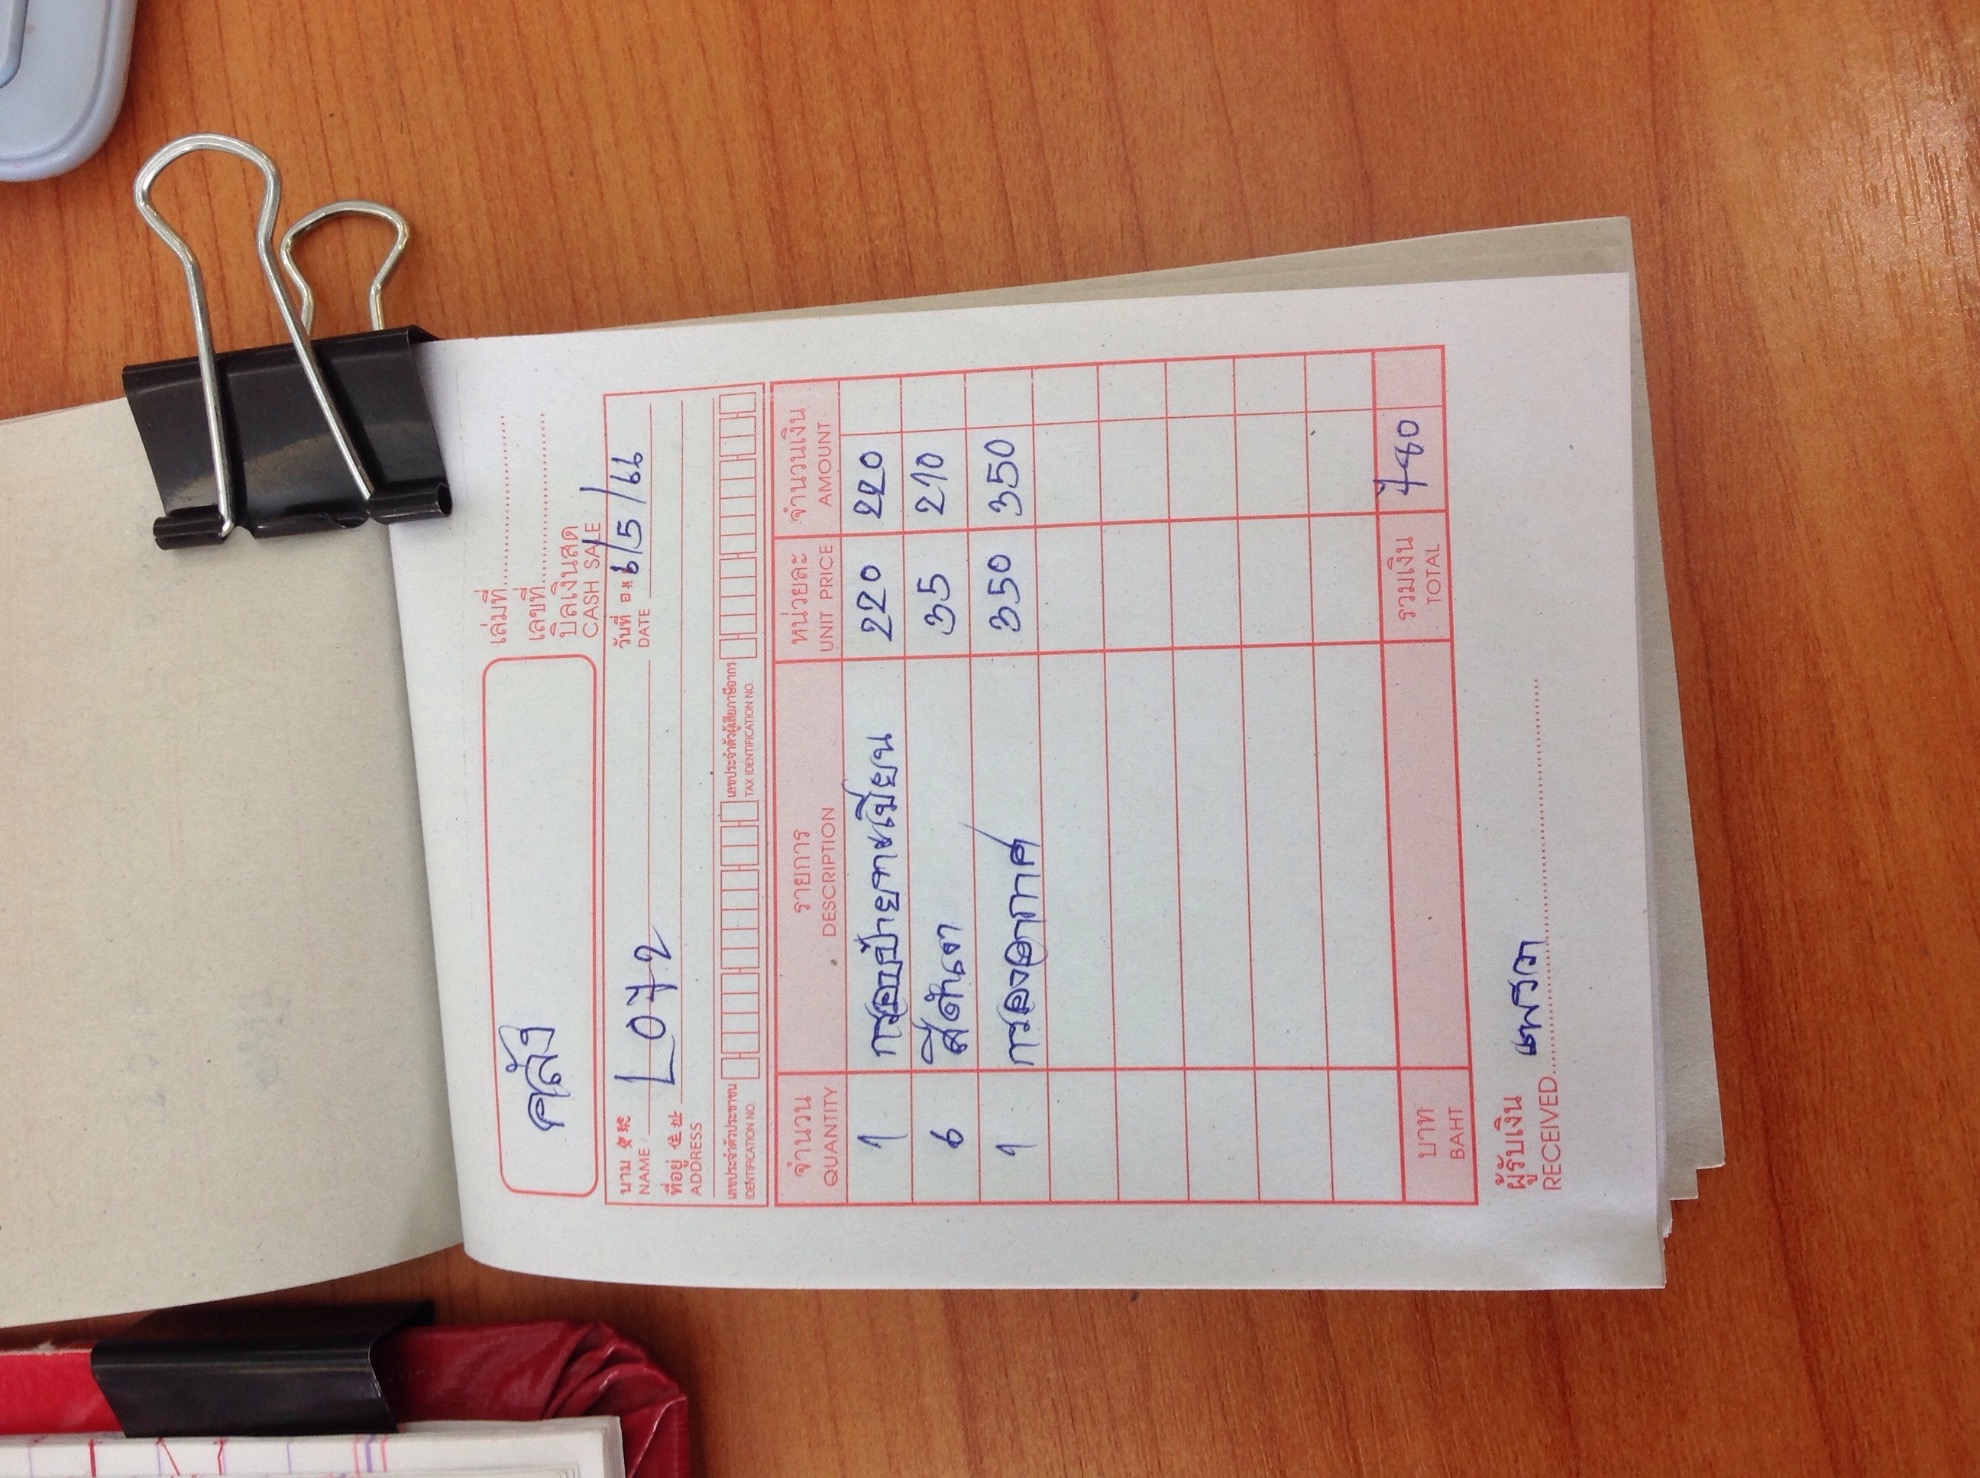 คลัง
เล่มที่
เลขที่
บิลเงินสด
CASH SALE
นาม 寶號 L072 วันที่ 日期 6/5/66
NAME DATE
ที่อยู่ 住址
ADDRESS
เลขประจำตัวประชาชน เลขประจำตัวผู้เสียภาษีอากร
IDENTIFICATION NO. TAX IDENTIFICATION NO.
จำนวน รายการ หน่วยละ จำนวนเงิน
QUANTITY DESCRIPTION UNIT PRICE AMOUNT
1 กรอบป้ายทะเบียน 220 220
6 35 210
1 กรองอากาศ 350 350
บาท รวมเงิน 780
BAHT TOTAL
ผู้รับเงิน แพรวา
RECEIVED